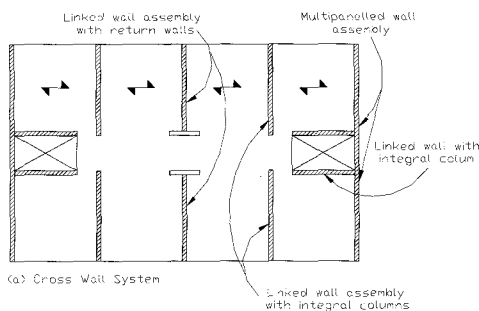 Linked wall assembly
with return walls
Multipanelled wall
assembly
Linked wall with
integral colum
(a) Cross Wall System
Linked wall assembly
with integral columns